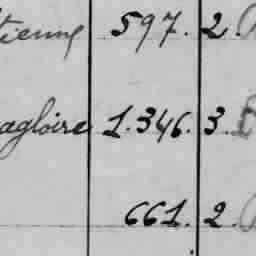 tienne 597. 2.
agloire 1.346. 3.
661. 2.